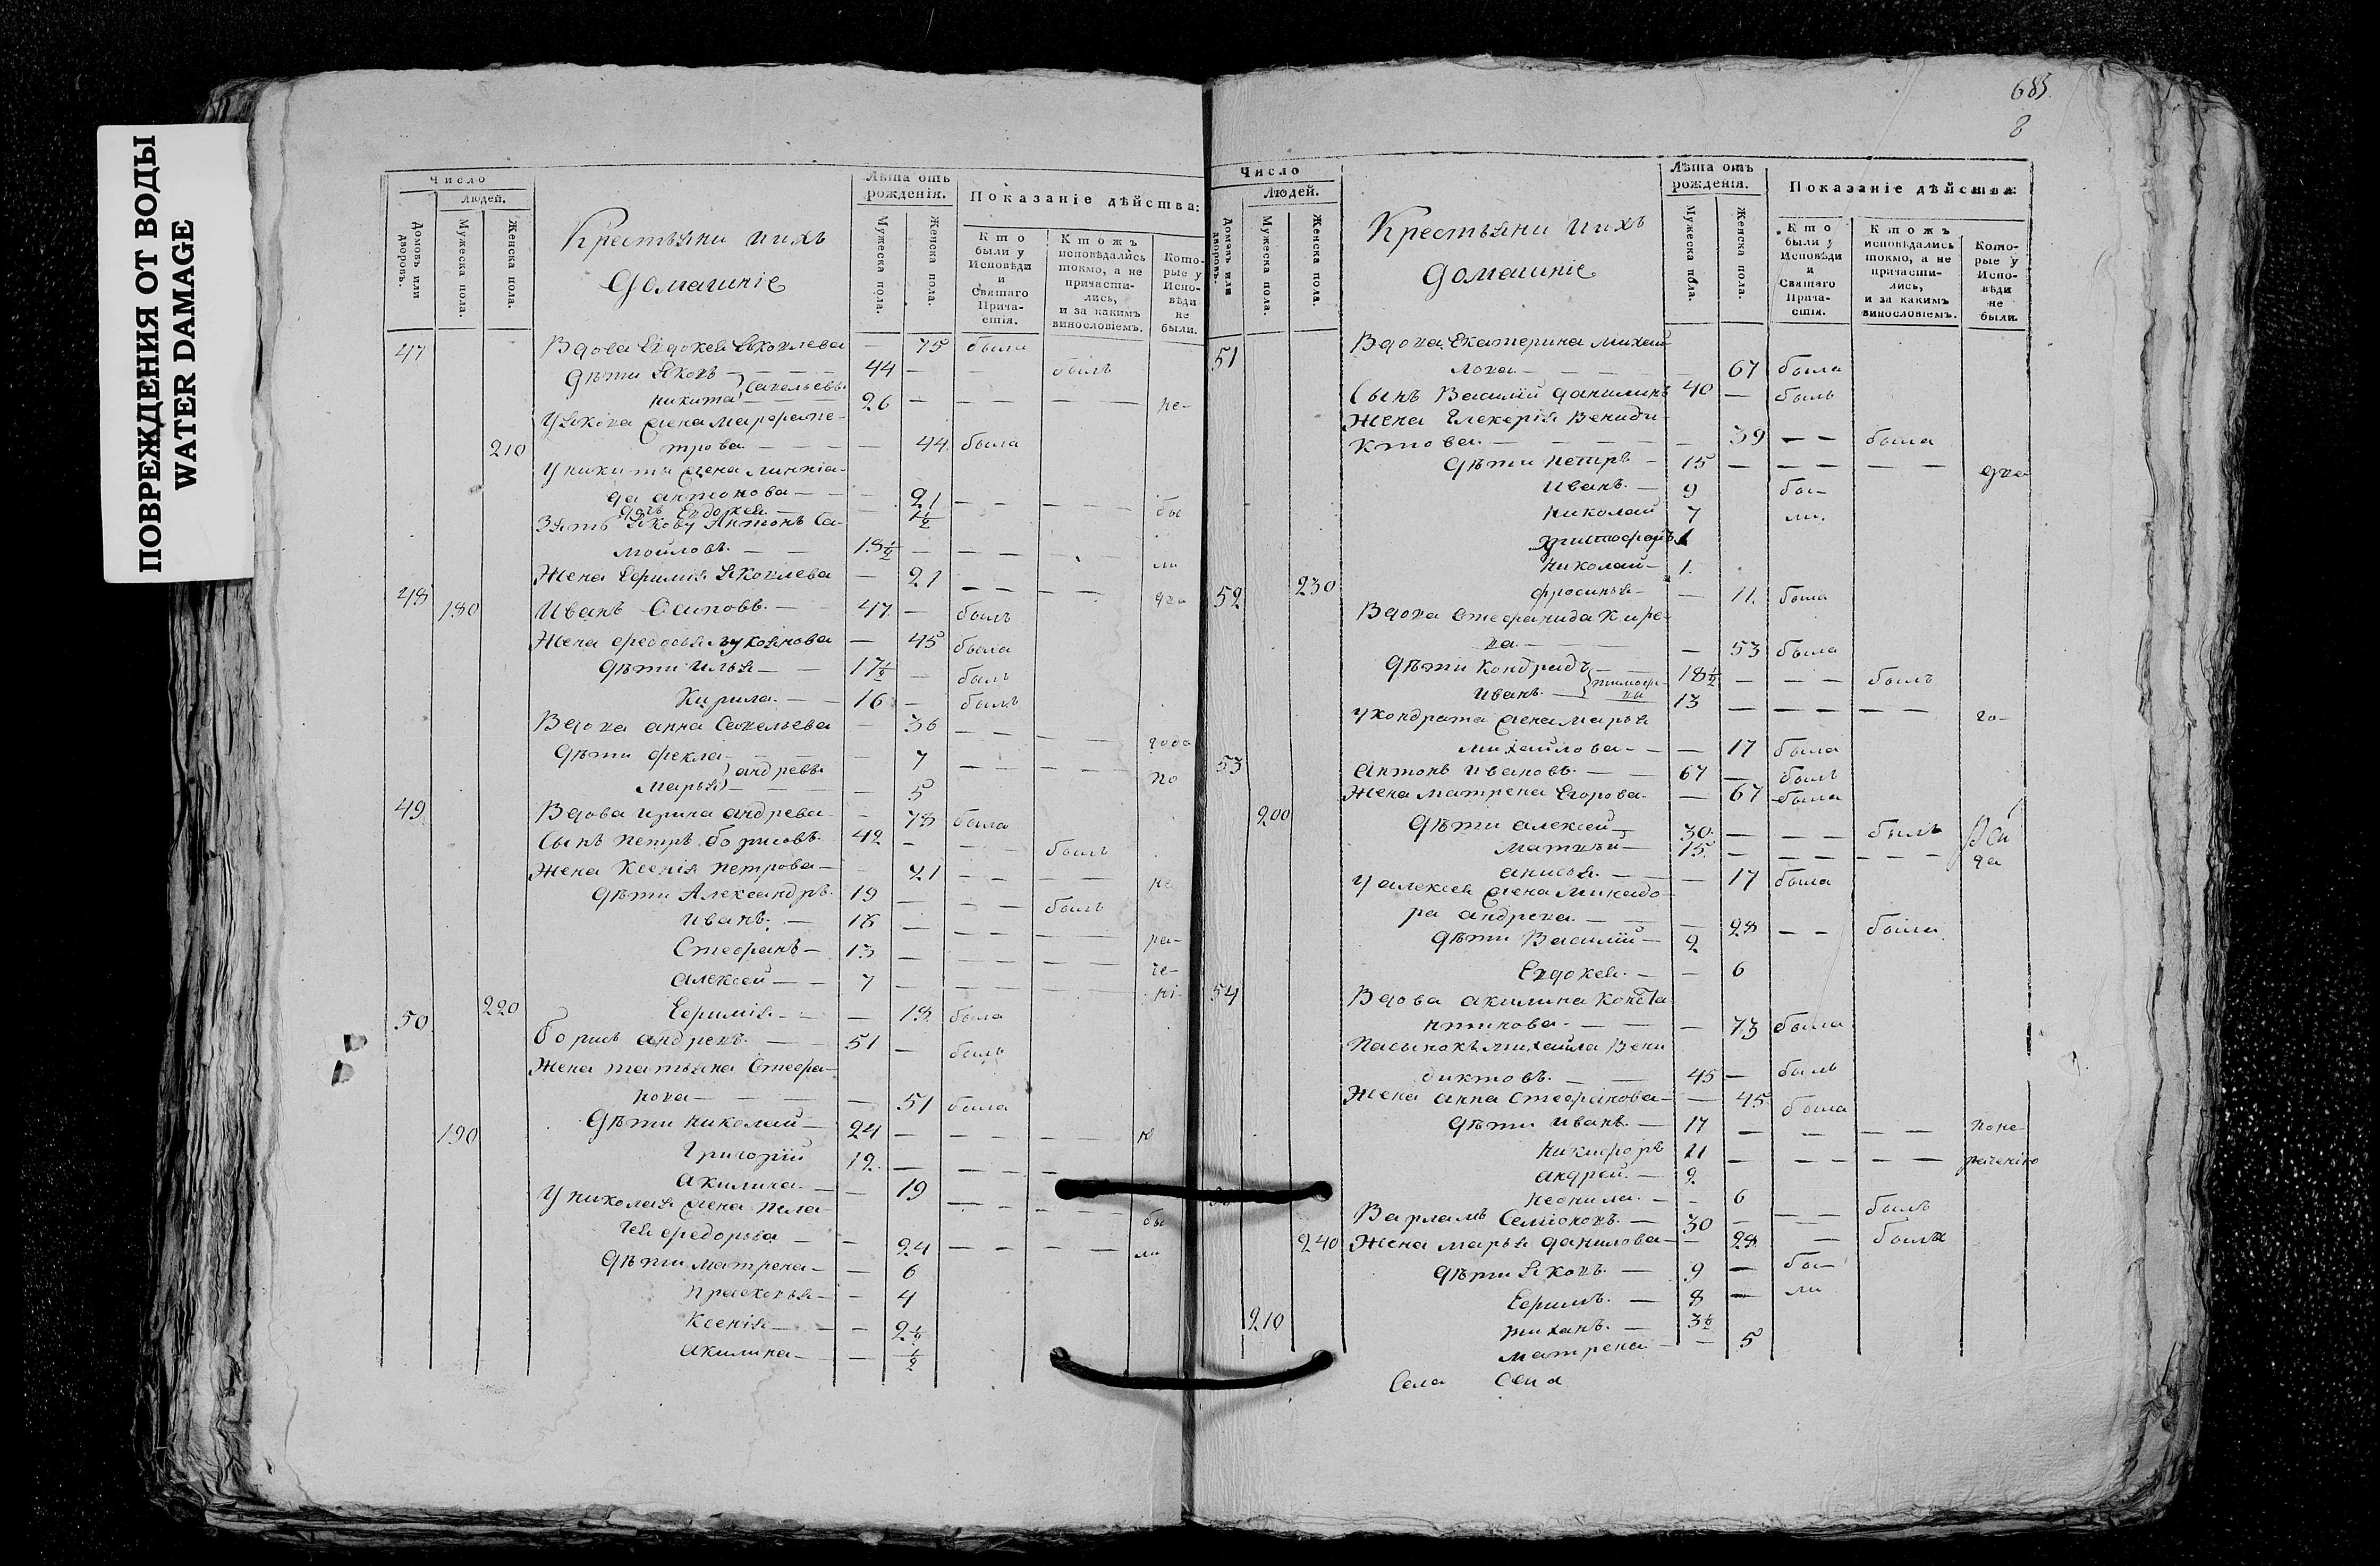 ПОВРЕЖДЕНИЯ ОТ ВОДЫ
WATER DAMAGE
Число
Людей.
Домовъ или дворовъ.
Мужеска пола.
Женска пола.
Крестьяни ииxъ
домашніе
Лѣта отъ рожденія.
Мужеска пола.
Женска пола.
Показаніе дѣйства:
Кто были у Исповѣди и Святаго Причастія.
Ктожъ исповѣдались токмо, а не причастились, и за какимъ винословіемъ.
Которые у Исповѣди не были.
47 Вдова Евдокея Яковлева — 75 была
дѣти Яковъ — 44 — — былъ
Савельевы
никита — 26 — — — — не-
У Якова жена Марфа пе-
210 трова — — 44 была
У никиты жена Минкіа-
да антонова — — 21 — — — бы
дочь Евдокея — — 1/2
Зять Якову Антонъ Са-
мойловъ. — — 18 1/2 — — — —
ли
Жена Ефимія Яковлева — 21 — — —
48 180 Иванъ Осиповъ. — 47 — былъ
Жена феодосья лукоянова — 45 была
дѣти илья — 17 1/2 — былъ
Кирила — 16 — былъ
Вдова анна Савельева — 36 — — —
дѣти фекла — — 7 — — — —
андревы
марья — — 5
по
49 Вдова ирина андрева — 78 была
Сынъ петръ борисовъ. 42 — — — былъ
Жена Ксенія петрова — — 21 — — — не
дѣти Александръ. 19 — — — былъ
иванъ. — 18 — — — — ра-
Стефанъ — 13 — — — — че-
алексей — — 7 — — — — ні-
220 Ефимія — — — 18 была
50 борисъ андревъ. — 51 — былъ
Жена татьяна Стефа-
нова — — — 51 была
190 дѣти николай — 24 — — — —
Григорій 12 — — — —
акилина. — — 19
У николая жена пела-
гея федорова — — 24 — — — — бы
ли
дѣти матрена — — 6
прасковья — — 4
Ксенія — — — 2 1/2
акилина — — 1/2
685.
8
Число
Людей.
Домовъ или дворовъ.
Мужеска пола.
Женска пола.
Крестьяни ииxъ
домашніе
Лѣта отъ рожденія.
Мужеска пола.
Женска пола.
Показаніе дѣйства:
Кто были у Исповѣди и Святаго Причастія.
Ктожъ исповѣдались токмо, а не причастились, и за какимъ винословіемъ.
Которые у Исповѣди не были.
51 Вдова Екатерина михай
лова — — — 67 была
Сынъ Василій данилинъ 40 — былъ
Жена Гликерія Вениди-
ктова. — — — — 39 — — была
дѣти петръ — 15 — — — — —
иванъ. — 9 бы-
николай 7 ли.
христофоръ 1
николай — 1.
230 фросинья — — 11. была
52 Вдова Стефанида Кире-
ва. — — — 53 была
дѣти Кондрадъ — 18 1/2 — — — былъ
тимофе-
вы
иванъ. — 13 — — — — —
го-
у кондрата жена марья
михайлова — — — 17 была
53 антонъ ивановъ. — — 67 — былъ
Жена матрена Егорова. — — 67 была
200 дѣти алексей — 30. — — былъ
матвѣй — 15. — — — — —
да
анисья. — — 17 была
у алексея жена Микадо-
ра андрева. — — 28 — — была
дѣти Василій — 2
Евдокея. — — 6
54 Вдова акилина конста
нтинова. — — — 73 была
пасынокъ михайла Вени
диктовъ. — — 45 — былъ
Жена анна Стефанова — — 45 была
дѣти иванъ. — 17 — — — — поне-
никифоръ 11 — — — — — раченію
андрей. — 2
неонила. — — 6
Варламъ Семіоновъ. — 30 — — — былъ
240 Жена марья данилова — — 28. — была
дѣти Яковъ. — 9 — бы-
Ефимъ. — 8 — ли
210 тиханъ. — 3 1/2
матрена — — 5
Села